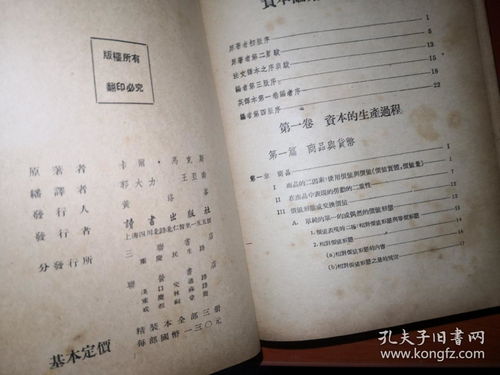 版權所有
翻印必究
原著者 卡爾・馬克斯
繙譯者 郭大力 王亞南
發行人 黃洛峯
發行者 讀書出版社
上海四川北路北仁智里一五五號
分發行所 三聯書店
重慶民生路
聯營書店
精裝本全部三冊
基本定價 每部國幣一三〇元
原著者初版序 1
原著者第二版跋 5
法文譯本之序與跋 13
編者第三版序 15
英譯本第一卷編者序 18
編者第四版序 22
第一卷 資本的生產過程
第一篇 商品與貨幣
第一章 商品 1
I 商品的二因素:使用價值與價值(價值實體,價值量) 1
II 在商品中表現的勞動的二重性
III 價值形態或交換價值
A 單純的單一的或偶然的價值形態
1. 價值表現的二極:相對價值形態與等價形態
2. 相對價值形態
(a) 相對價值形態的內容
(b) 相對價值形態之量的規定
孔夫子旧书网
www.kongfz.com